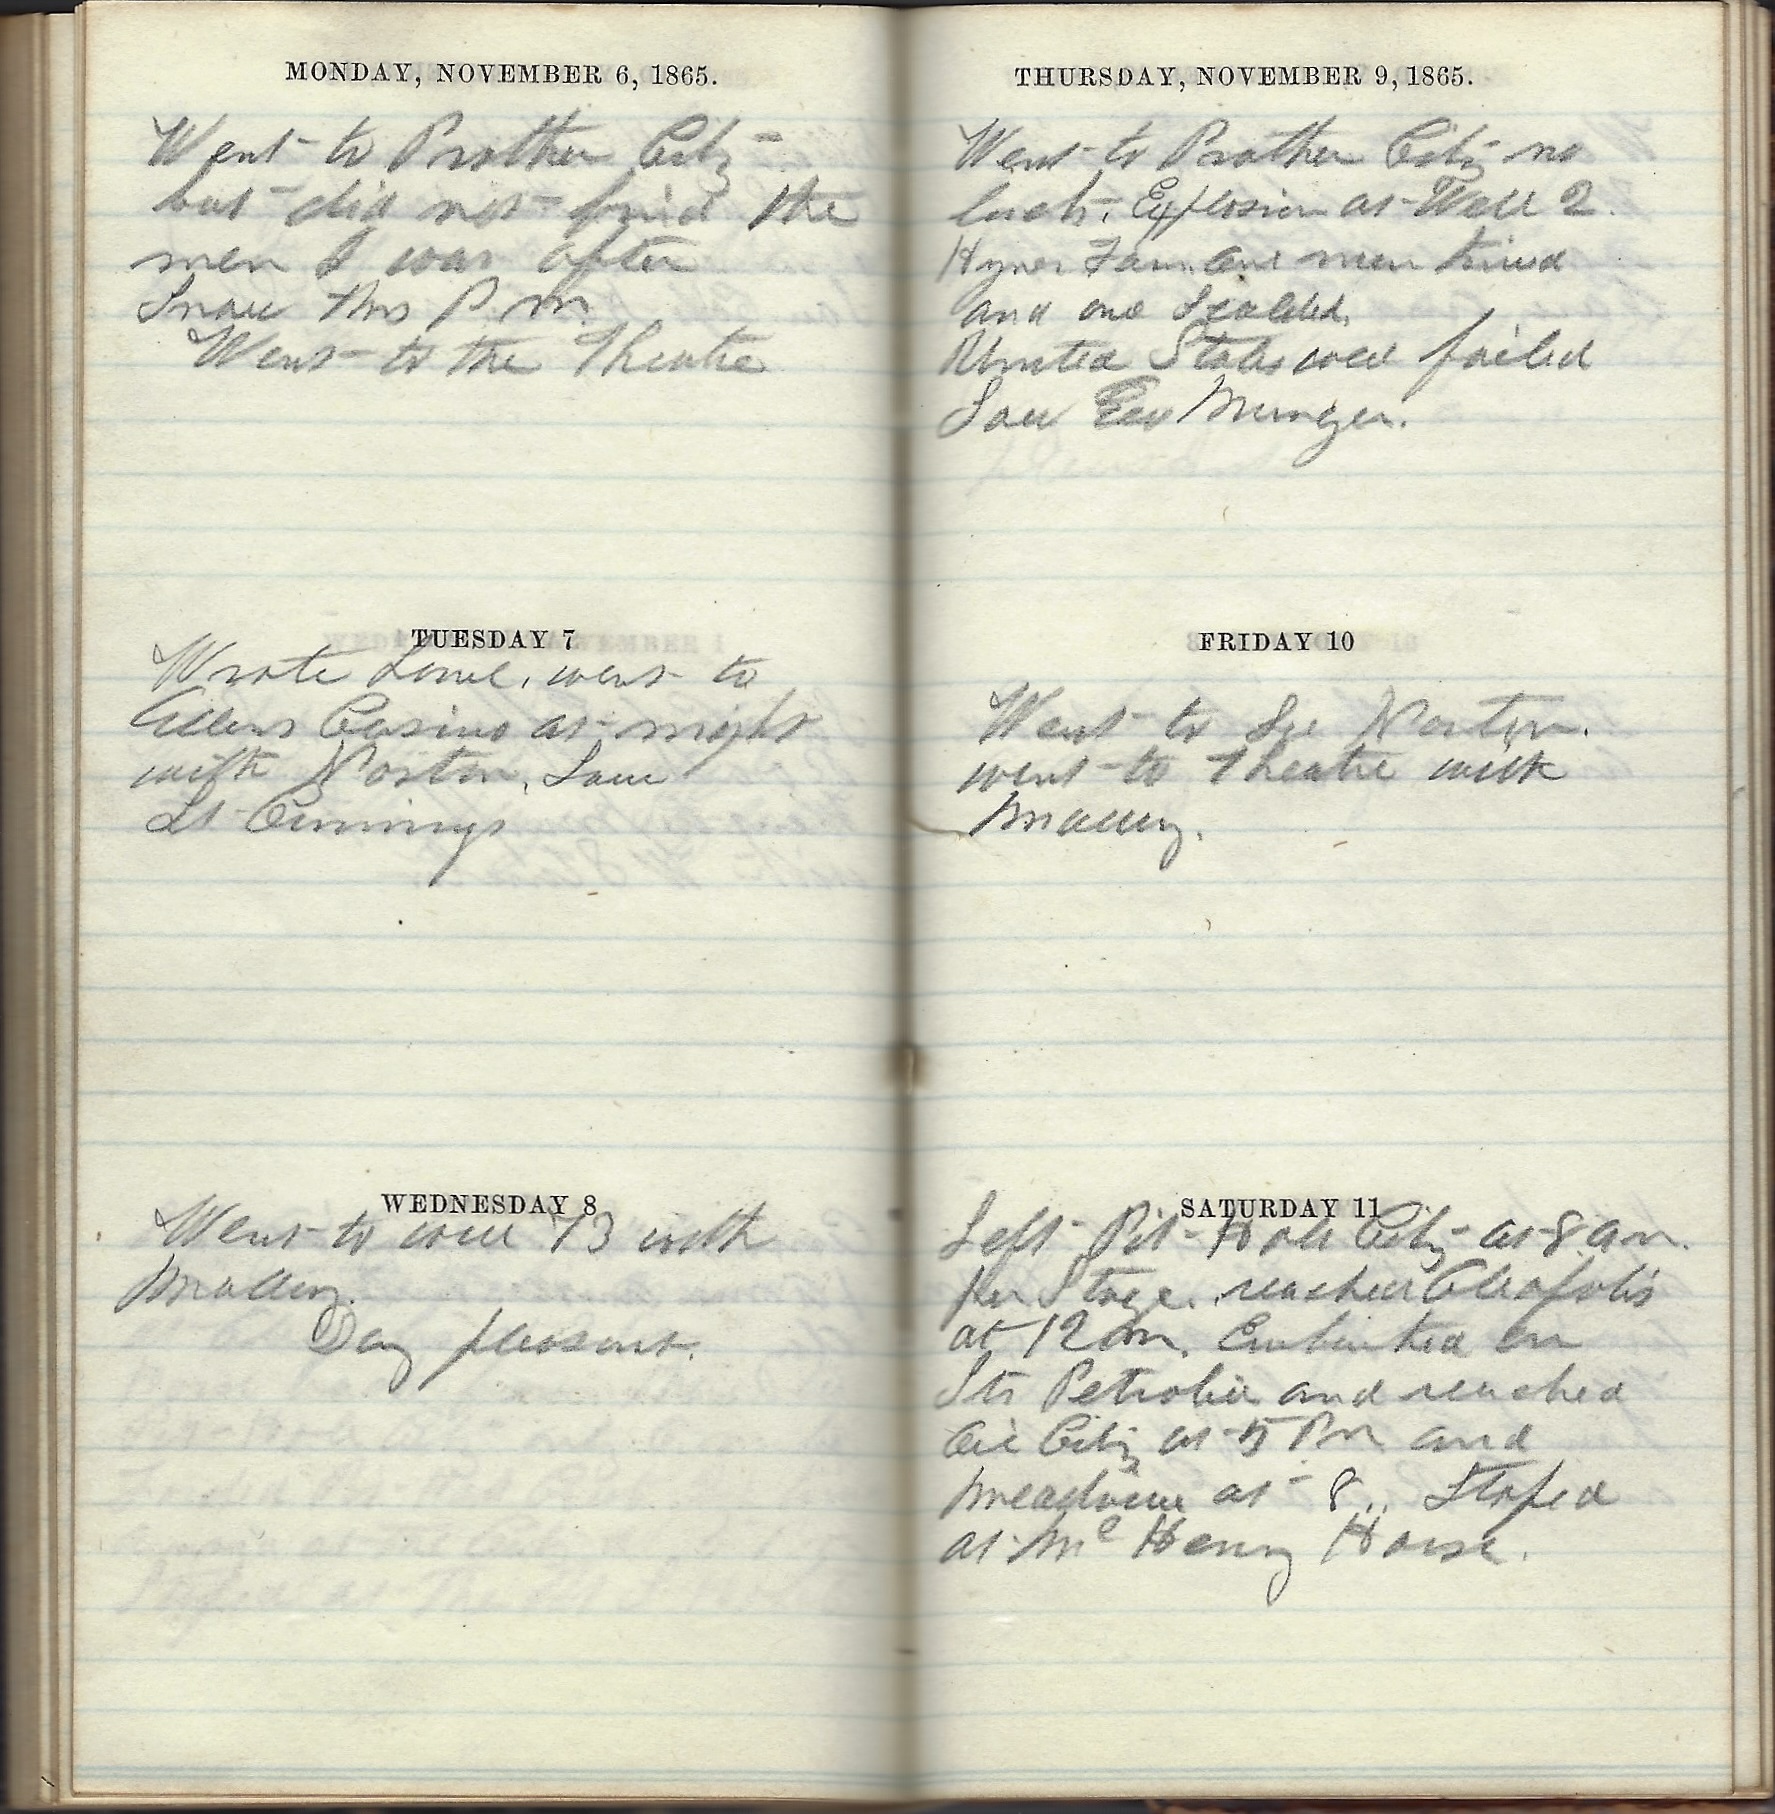 MONDAY, NOVEMBER 6, 1865.
Went to Prather City
but did not find the
men I was after
Snow this P.m.
Went to the Theatre
TUESDAY 7
Wrote Louie, went to
Allens Casino at night
with Norton, Saw
Lt Cummings
WEDNESDAY 8
Went to well 73 with
Mallery.
Day pleasant.
THURSDAY, NOVEMBER 9, 1865.
Went to Prather City no
luck, Explosion at Well 2.
Hyner Farm one man
and one Scalded.
United States well failed
Saw Geo Munger.
FRIDAY 10
Went to See Norton.
went to Theatre with
Mallery.
SATURDAY 11
Left Pit Hole City at 8 am.
per Stage. reached Oleopolis
at 12 m. Embarked on
Str Petrolia and reached
Oil City at 5 Pm and
Meadville at 8 ,, Stoped
at Mc Henry House.